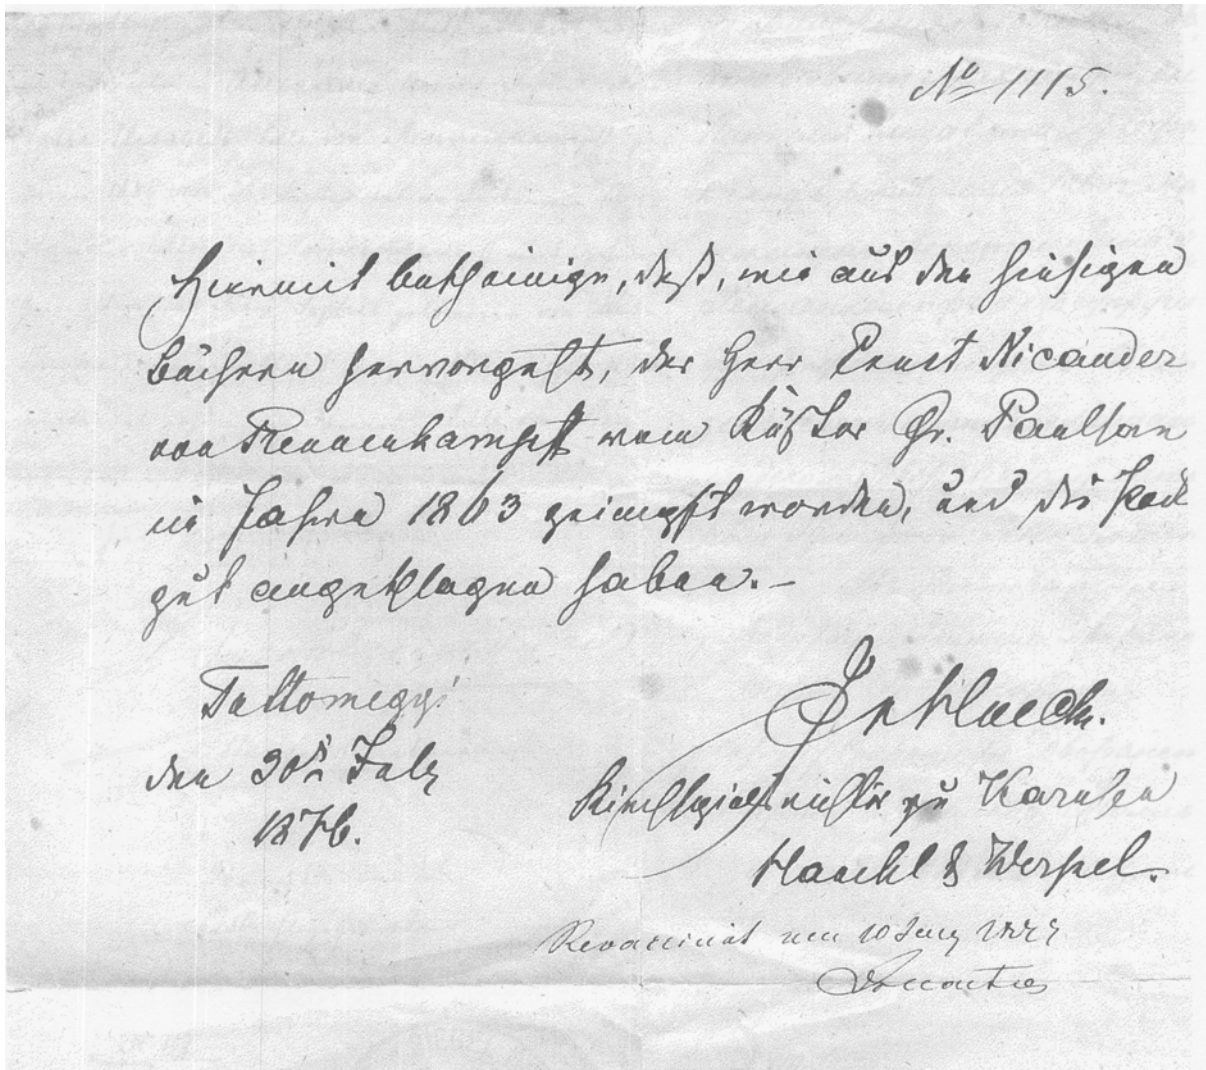 No 1115.
Hiermit bescheinige, daß, wie aus den hiesigen
Büchern hervorgeht, der Herr Ernst Nicander
von Rennenkampff vom Küster Gr. Paulson
im Jahre 1863 geimpft worden, und die Pocken
gut angeschlagen haben.-
Tuttomeggi
den 30ten July
1876.
Kirchspielsrichter zu Karusen
Hanehl & Werpel.
Revaccinat am 10